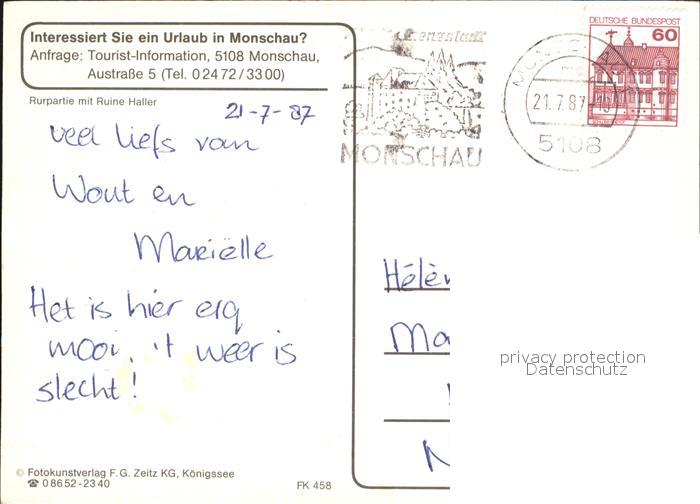 Interessiert Sie ein Urlaub in Monschau?
Anfrage: Tourist-Information, 5108 Monschau,
Austraße 5 (Tel. 02472/3300)
Rurpartie mit Ruine Haller
21-7-87
veel liefs van
Wout en
Mariëlle
Het is hier erg
mooi, 't weer is
slecht!
© Fotokunstverlag F.G. Zeitz KG, Königssee
☎ 08652-2340
FK 458
MONSCHAU
21.7.87
5108
DEUTSCHE BUNDESPOST
60
Hélèn
Ma
privacy protection
Datenschutz